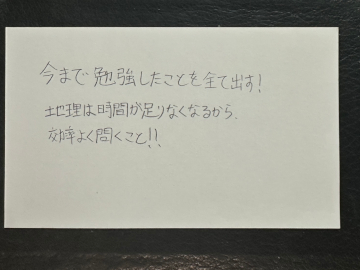 今まで勉強したことを全て出す!
地理は時間が足りなくなるから、
効率よく聞くこと!!